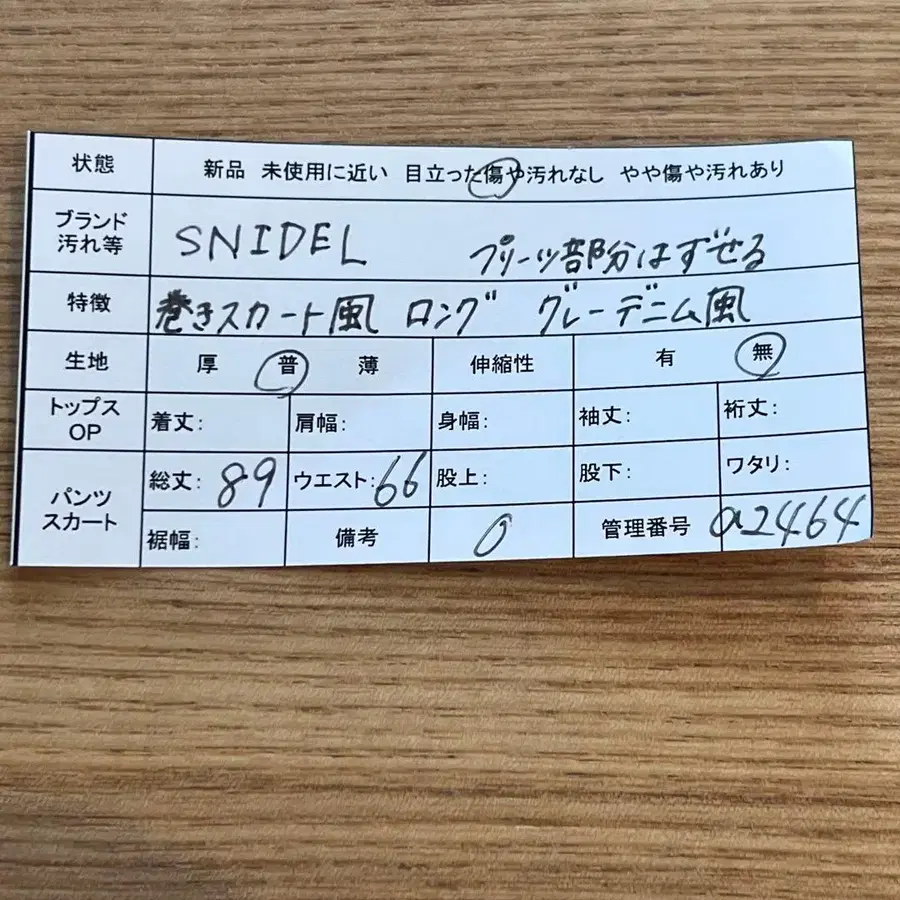 状態 新品 未使用に近い 目立った傷や汚れなし やや傷や汚れあり
ブランド 汚れ等 SNIDEL プリーツ部分はずせる
特徴 巻きスカート風 ロング グレーデニム風
生地 厚 普 薄 伸縮性 有 無
トップス OP 着丈: 肩幅: 身幅: 袖丈: 裄丈:
パンツ スカート 総丈: 89 ウエスト: 66 股上: 股下: ワタリ:
裾幅: 備考 0 管理番号 a2464